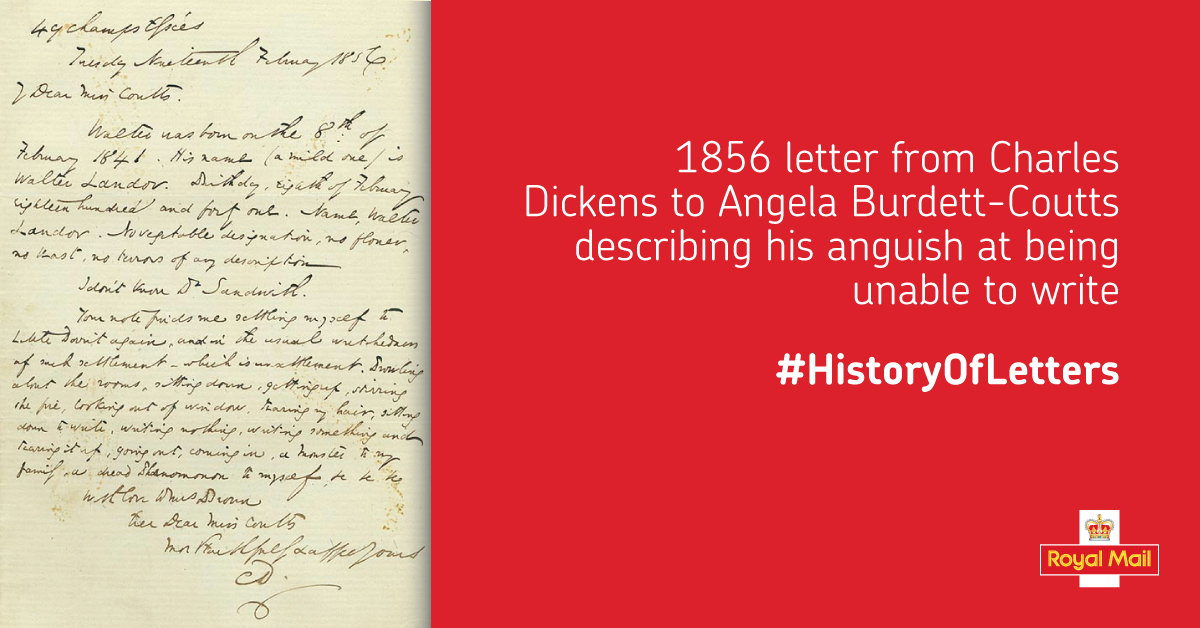 49 Champs Elysées
Tuesday Nineteenth February 1856.
My Dear Miss Coutts.
Walter was born on the 8th. of
February 1841. His name (a mild one) is
Walter Landor. Birthday, Eighth of February
Eighteen hundred and forty one. Name, Walter
Landor. No vegetable designation, no flower,
no beast, no terrors of any description
I don't know Dr Sandwith.
Your note finds me settling myself to
Little Dorrit again, and in the usual wretchedness
of such settlement – which is unsettlement. Prowling
about the rooms, sitting down, getting up, stirring
the fire, looking out of window, tearing my hair, sitting
down to write, writing nothing, writing something and
tearing it up, going out, coming in, a Monster to my
family, a dread Phænomenon to myself, &c &c &c
With love to Mrs Brown
Ever Dear Miss Coutts
Most faithfully & affecy Yours
CD.
1856 letter from Charles
Dickens to Angela Burdett-Coutts
describing his anguish at being
unable to write
#HistoryOfLetters
Royal Mail